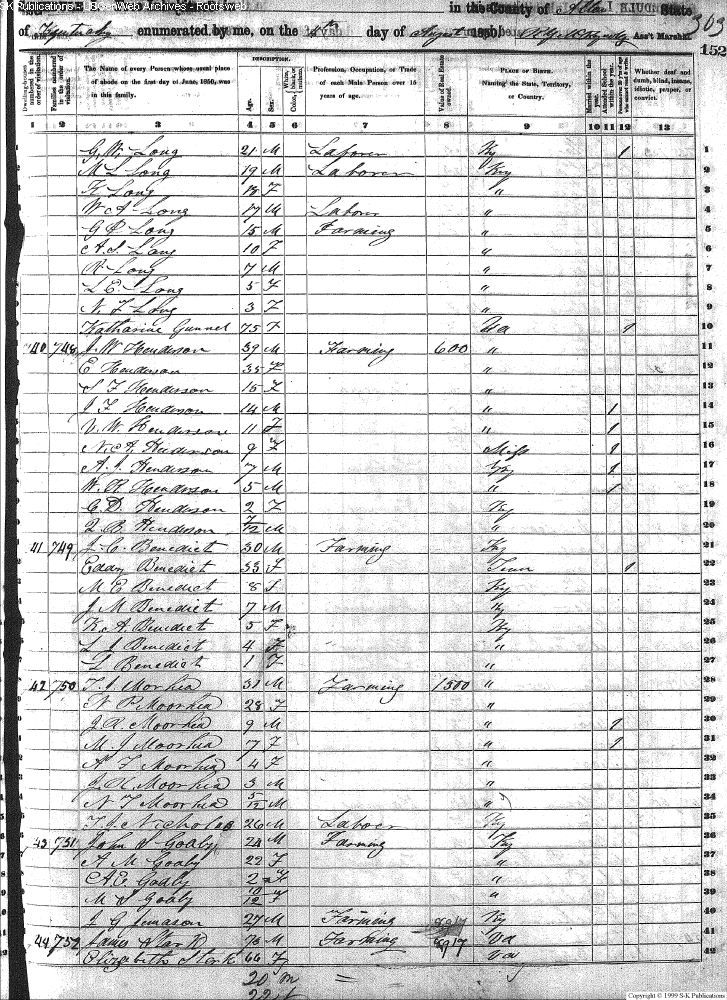 S-K Publications - USGenWeb Archives - Rootsweb
in the County of Allen State
of Kentucky enumerated by me, on the day of August Ass't Marshal.
303
152
Dwelling-houses numbered in the order of visitation.
Families numbered in the order of visitation.
The Name of every Person whose usual place of abode on the first day of June, 1850, was in this family.
DESCRIPTION.
Age.
Sex.
Color,
Profession, Occupation, or Trade of each Male Person over 15 years of age.
Value of Real Estate owned.
PLACE OF BIRTH. Naming the State, Territory, or Country.
Married within the year.
Attended School within the year.
Whether deaf and dumb, blind, insane, idiotic, pauper, or convict.
1 2 3 4 5 6 7 8 9 10 11 12 13
G. W. Long 21 M Laborer Ky 1 1
M L Long 19 M Laborer Ky 2
F Long 18 F " 3
W A Long 17 M Laborer " 4
G P Long 15 M Farming " 5
A. S. Long 10 F " 6
R Long 7 M " 7
L E Long 5 F " 8
N. F Long 3 F " 9
Katharine Gunnel 75 F Va 1 10
40 748 J. W Henderson 39 M Farming 600 " 11
E Henderson 35 F " 12
S F Henderson 15 F " 13
J F Henderson 14 M " 1 14
V. W. Henderson 11 F " 1 15
N. A. Henderson 9 F Miss 1 16
A. J. Henderson 7 M Ky 1 17
W. R Henderson 5 M " 1 18
C. D. Henderson 2 F Ky 19
Z B Henderson /12 M " 20
41 749 J. C. Benedict 30 M Farming Ky 21
Eddy Benedict 33 F Tenn 1 22
M E Benedict 8 F Ky 23
J M Benedict 7 M Ky 24
K. A Benedict 5 F Ky 25
L J Benedict 4 F " 26
L Benedict 1 F " 27
42 750 T. J. Morhia 31 M Farming 1500 " 28
N P Moorhia 28 F " 29
J A Moorhia 9 M " 1 30
M. J Moorhia 7 F " 1 31
A F Moorhia 4 F " 32
J R Moorhia 3 M " 33
N T Moorhia 5/12 M " 34
T. J. Nicholas 26 M Laborer Ky 35
43 751 John S Goaby 24 M Farming Ky 36
A M Goaby 22 F " 37
A E Goaby 2 F " 38
M S Goaby 10/12 F " 39
27 M Farming Ky 40
44 752 James Stark 73 M Farming Va 41
Elizabeth Stark 66 F Va 42
20 m =
22 f
Copyright © 1999 S-K Publications